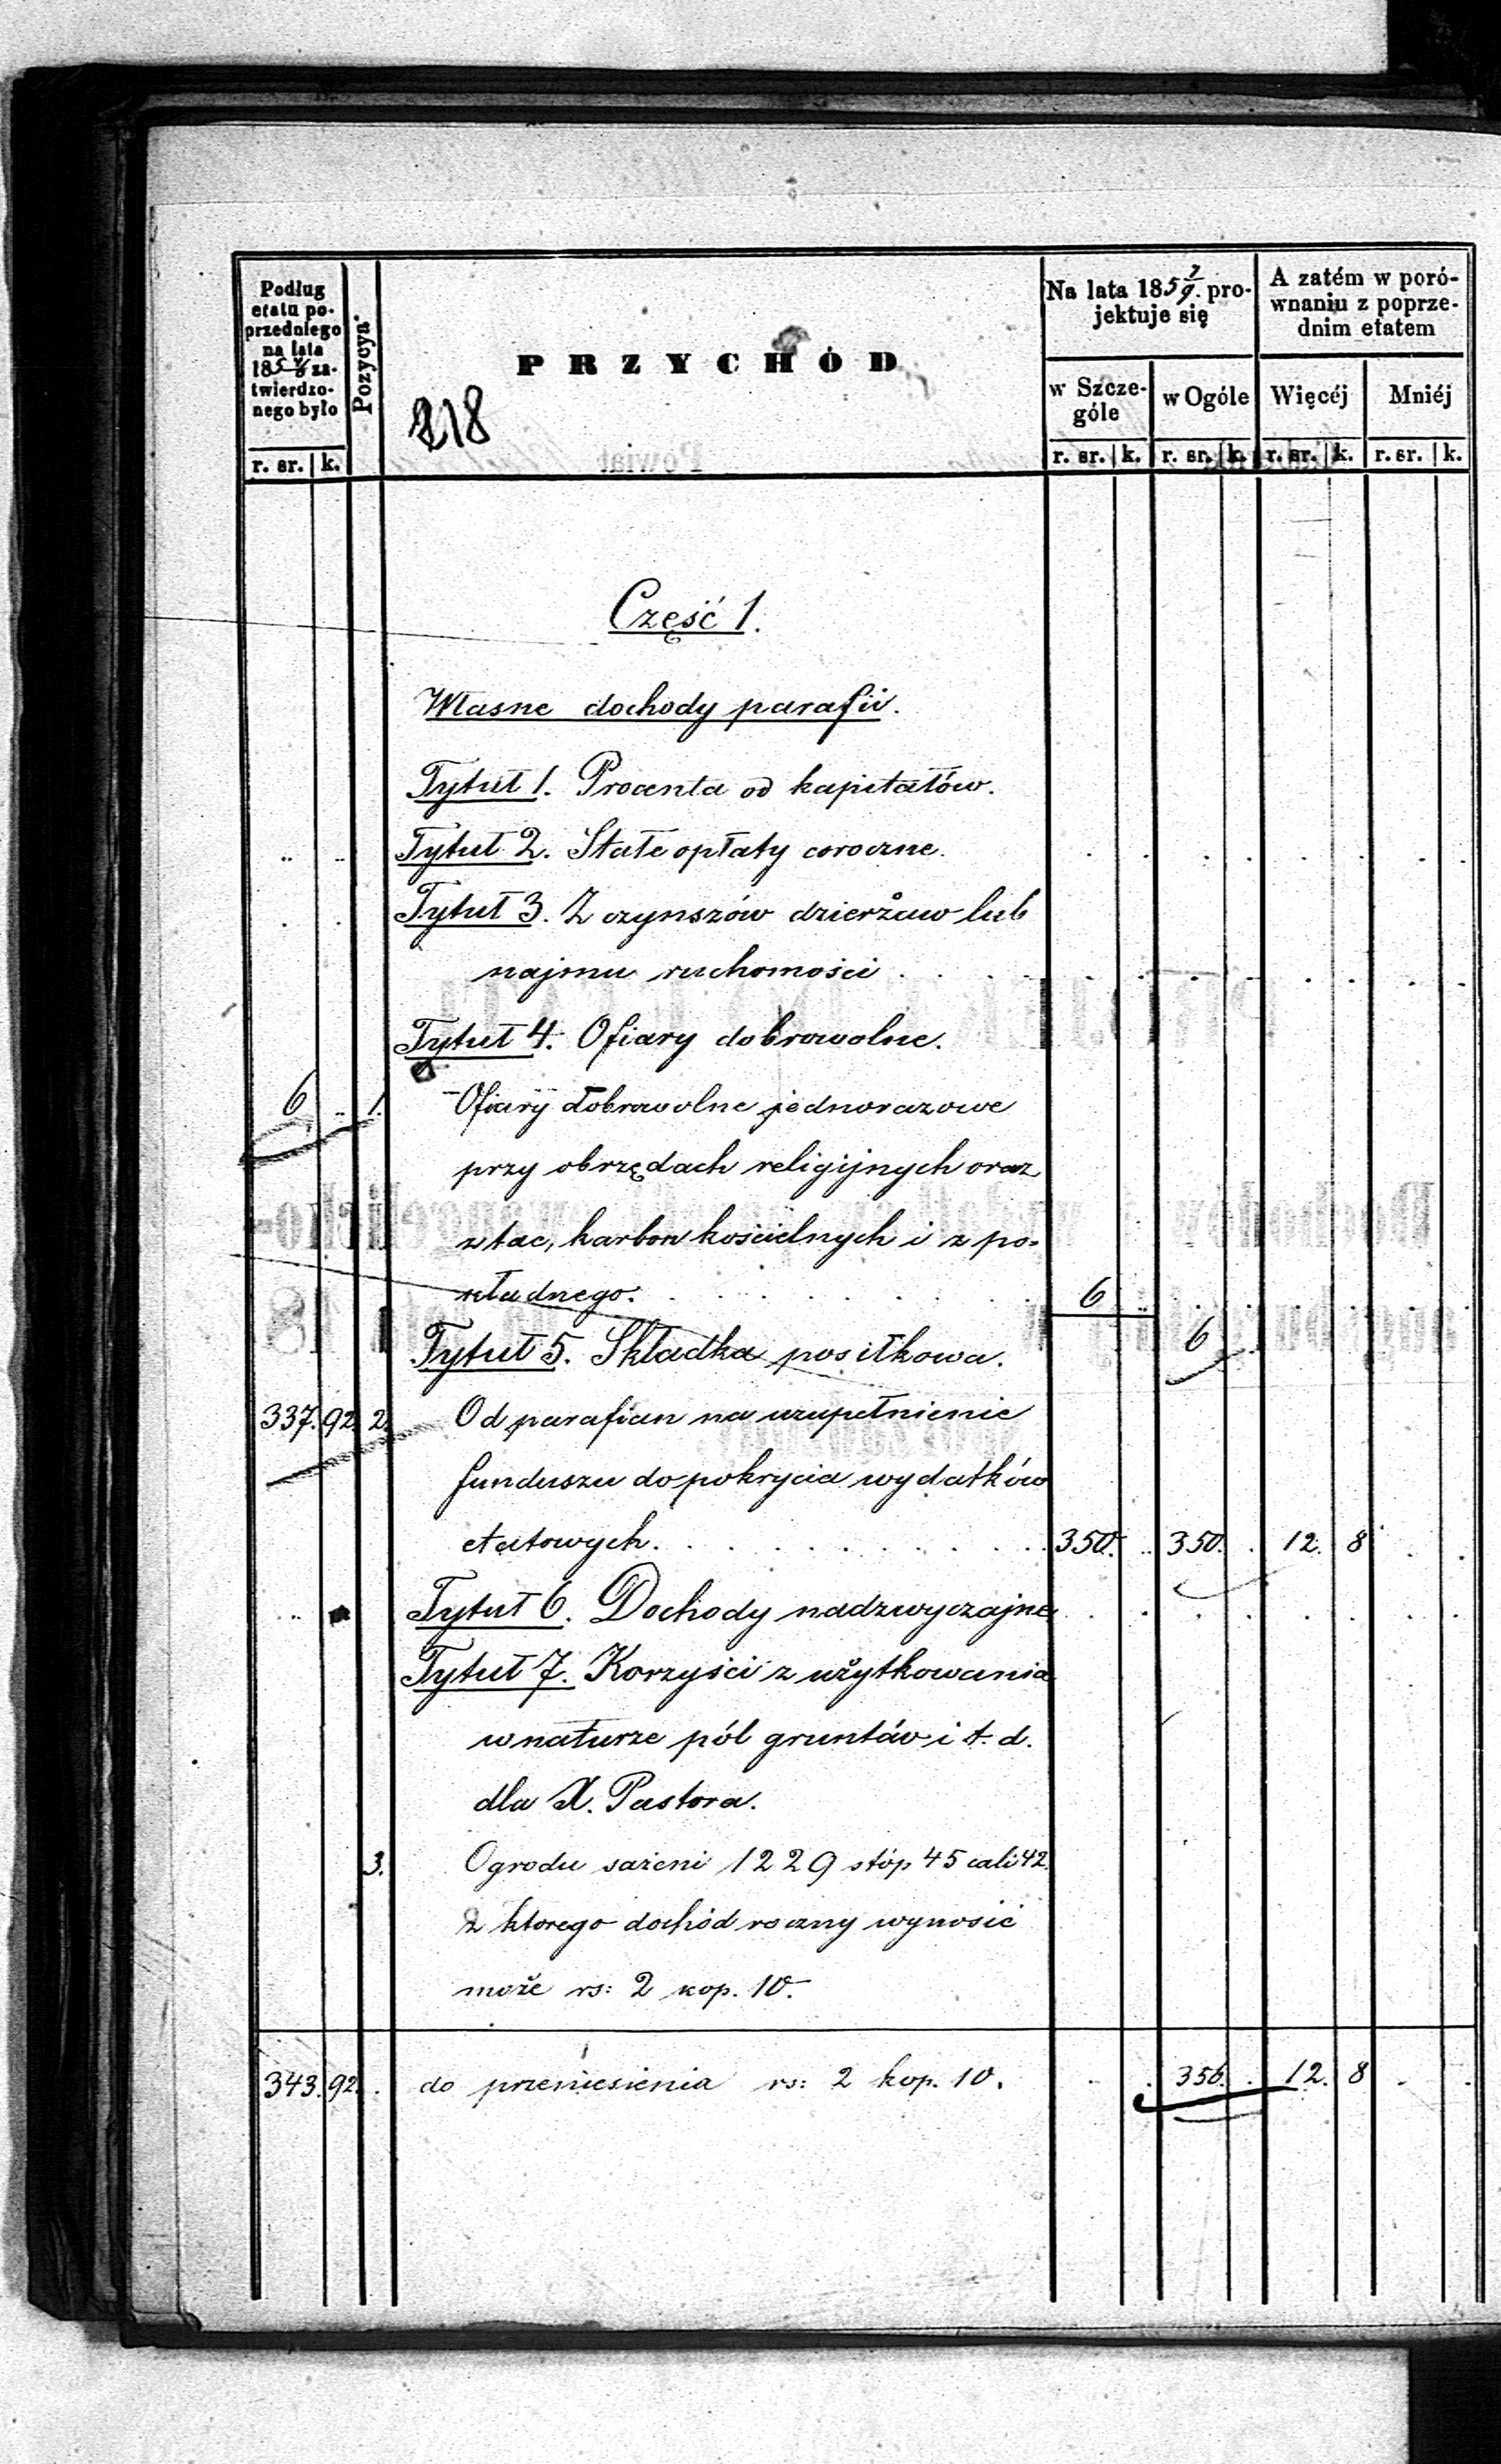 Podług
etatu po-
przedniego
na lata
185 4/6 za-
twierdzo-
nego było
r. sr. k.
Pozycya
PRZYCHÓD
218
Na lata 185 7/9. pro-
jektuje się
w Szcze-
góle
r. sr. k.
w Ogóle
r. sr. k.
A zatém w poró-
wnaniu z poprze-
dnim etatem
Więcéj
r. sr. k.
Mniéj
r. sr. k.
Część 1.
Własne dochody parafii.
Tytuł 1. Procenta od kapitałów.
Tytuł 2. Stałe opłaty coroczne.
Tytuł 3. Z czynszów dzierżaw lub
najmu ruchomości . . . .
Tytuł 4. Ofiary dobrowolne.
6 .. 1. Ofiary dobrowolne jednorazowe
przy obrzędach religijnych oraz
z tac, karbon kościelnych i z po-
kładnego. . . . . . . . 6 ..
6
Tytuł 5. Składka posiłkowa.
337. 92. 2. Od parafian na uzupełnienie
funduszu do pokrycia wydatków
etatowych. . . . . . . . 350. .. 350. . 12. 8
Tytuł 6. Dochody nadzwyczajne
Tytuł 7. Korzyści z użytkowania
w naturze pól gruntów i t. d.
dla X. Pastora.
3. Ogrodu sażeni 1229 stóp 45 cali 42.
z ktorego dochód roczny wynosić
może rs: 2 kop. 10.
343. 92. . do przeniesienia rs: 2 kop. 10. . . 356. . 12. 8 . .